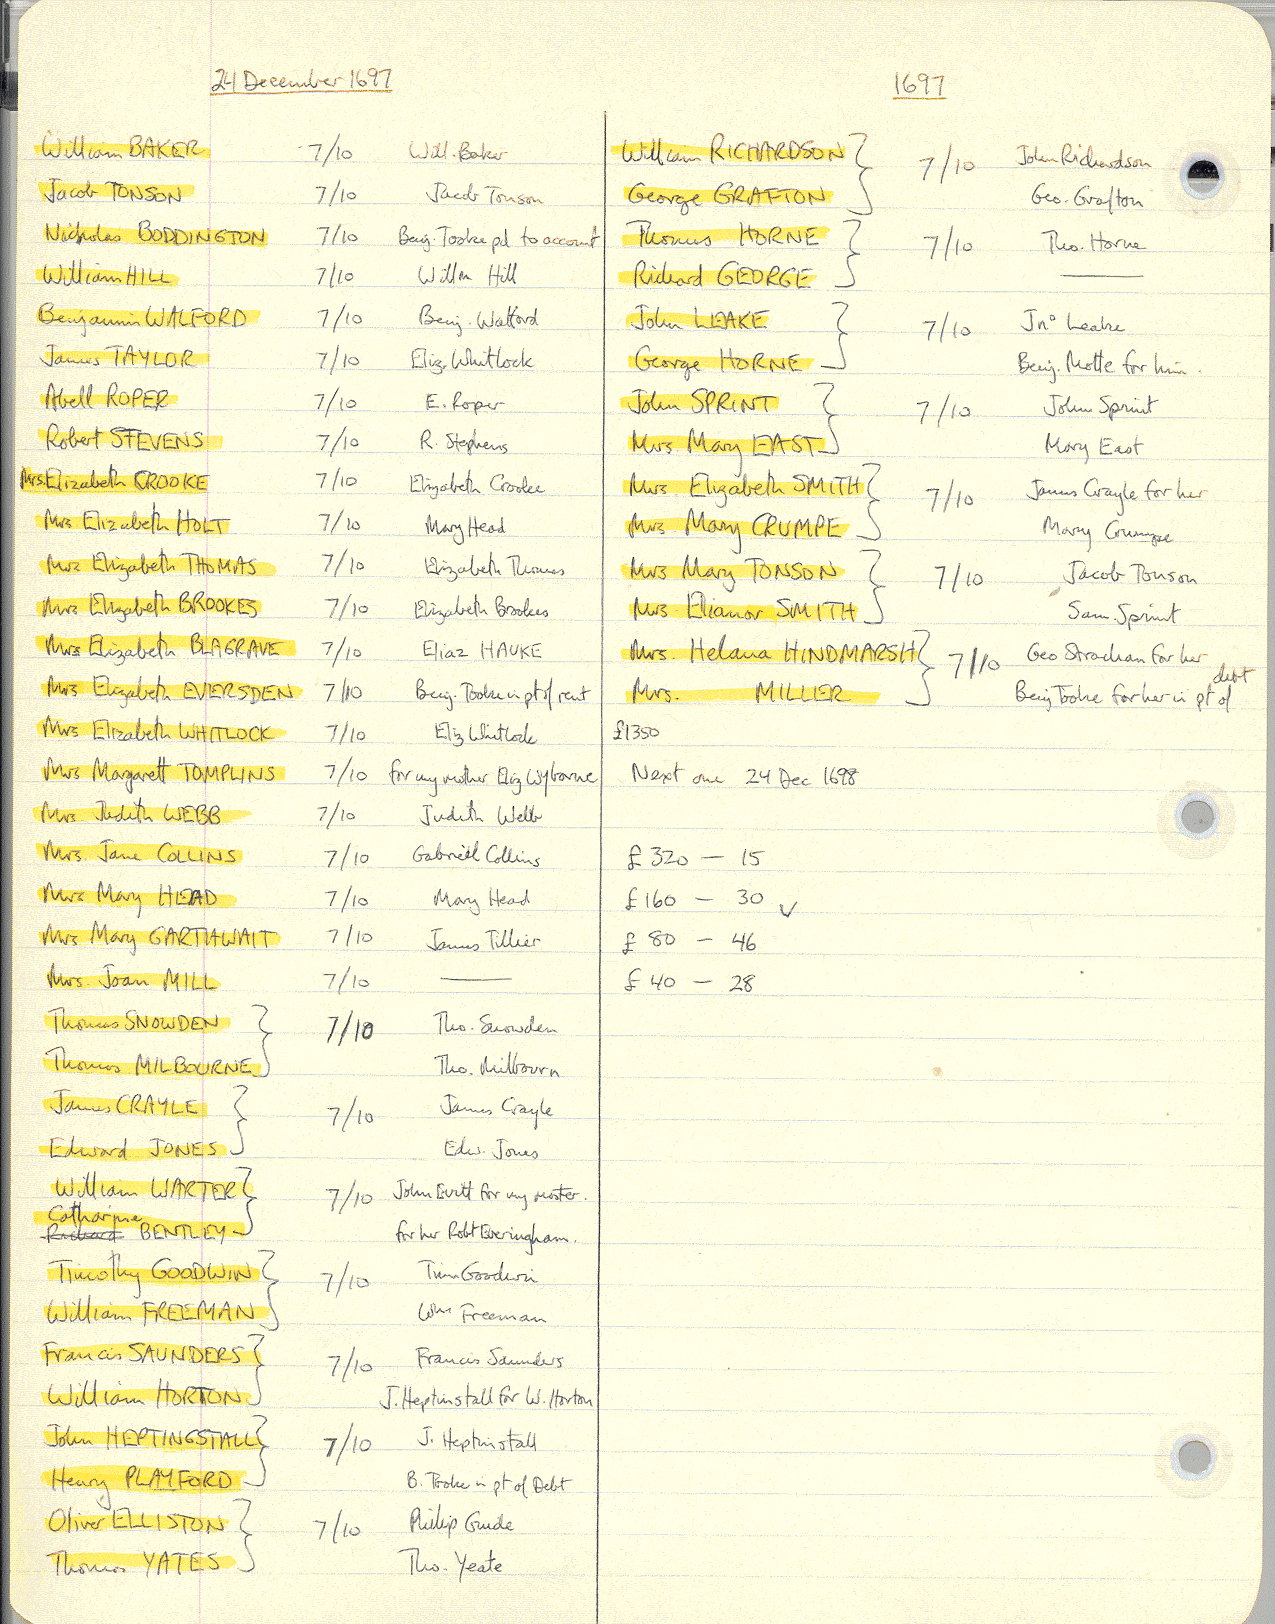 24 December 1697
William BAKER 7/10 Will. Baker
Jacob TONSON 7/10 Jacob Tonson
Nicholas BODDINGTON 7/10 Benj. Tooke pd to account
William HILL 7/10 Willm Hill
Benjamin WALFORD 7/10 Benj. Walford
James TAYLOR 7/10 Eliz. Whitlock
Abell ROPER 7/10 E. Roper
Robert STEVENS 7/10 R. Stephens
Mrs. Elizabeth CROOKE 7/10 Elizabeth Crooke
Mrs Elizabeth HOLT 7/10 Mary Head
Mrs Elizabeth THOMAS 7/10 Elizabeth Thomas
Mrs Elizabeth BROOKES 7/10 Elizabeth Brookes
Mrs Elizabeth BLAGRAVE 7/10 Eliaz HAUKE
Mrs Elizabeth EVERSDEN 7/10 Benj. Tooke in pt of rent
Mrs Elizabeth WHITLOCK 7/10 Eliz Whitlock
Mrs Margarett TOMPLINS 7/10 for my mother Eliz Wyborne
Mrs Judith WEBB 7/10 Judith Webb
Mrs. Jane COLLINS 7/10 Gabriell Collins
Mrs Mary HEAD 7/10 Mary Head
Mrs Mary GARTHWAIT 7/10 James Tillier
Mrs. Joan MILL 7/10 ———
Thomas SNOWDEN } 7/10 Tho. Snowden
Thomas MILBOURNE Tho. Milbourn
James CRAYLE } 7/10 James Crayle
Edward JONES Edw. Jones
William WARTER } 7/10 John Evitt for my master.
Catharine
Richard BENTLEY for her Robt Everingham.
Timothy GOODWIN } 7/10 Tim Goodwin
William FREEMAN Wm Freeman
Francis SAUNDERS } 7/10 Francis Saunders
William HORTON J. Heptinstall for W. Horton
John HEPTINGSTALL } 7/10 J. Heptinstall
Henry PLAYFORD B. Tooke in pt of Debt
Oliver ELLISTON } 7/10 Phillip Guide
Thomas YATES Tho. Yeate
1697
William RICHARDSON } 7/10 John Richardson
George GRAFTON Geo. Grafton
Thomas HORNE } 7/10 Tho. Horne
Richard GEORGE ———
John LEAKE } 7/10 Jno Leake
George HORNE Benj. Motte for him.
John SPRINT } 7/10 John Sprint
Mrs. Mary EAST Mary East
Mrs Elizabeth SMITH } 7/10 James Crayle for her
Mrs Mary CRUMPE Mary Crumpe
Mrs Mary TONSON } 7/10 Jacob Tonson
Mrs. Elianor SMITH Sam. Sprint
Mrs. Helana HINDMARSH } 7/10 Geo Strachan for her
Mrs. MILLER Benj Tooke for her in pt of debt
£1350
Next one 24 Dec 1698
£ 320 — 15
£160 — 30 ✓
£ 80 — 46
£ 40 — 28